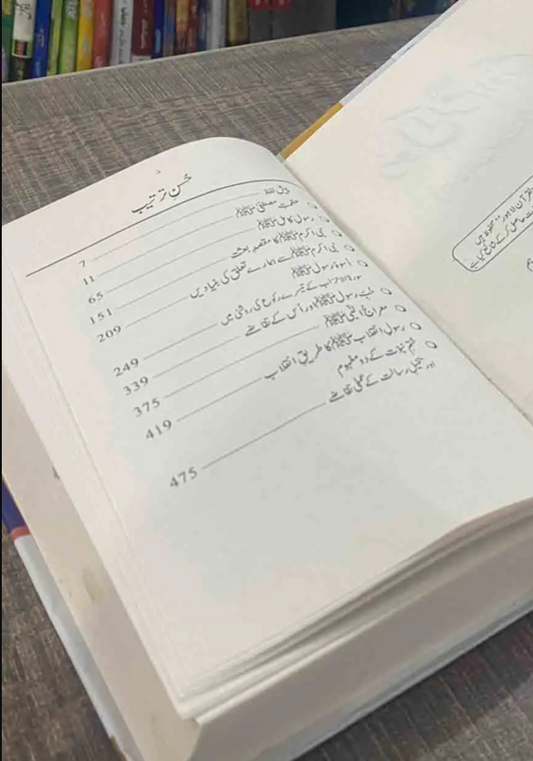 حُسنِ ترتیب
پیش لفظ 7
عظمتِ مصطفیٰ ﷺ 11
رسولِ کامل ﷺ 65
نبی اکرم ﷺ کا مقصدِ بعثت 151
نبی اکرم ﷺ سے ہمارے تعلق کی بنیادیں 209
اُسوۂ رسول ﷺ
سورۃ الاحزاب کے تیسرے رکوع کی روشنی میں 249
حُبِّ رسول ﷺ اور اُس کے تقاضے 339
معراج النبی ﷺ 375
رسولِ انقلاب ﷺ کا طریقِ انقلاب 419
ختمِ نبوت کے دو مفہوم
اور تکمیلِ رسالت کے عملی تقاضے 475